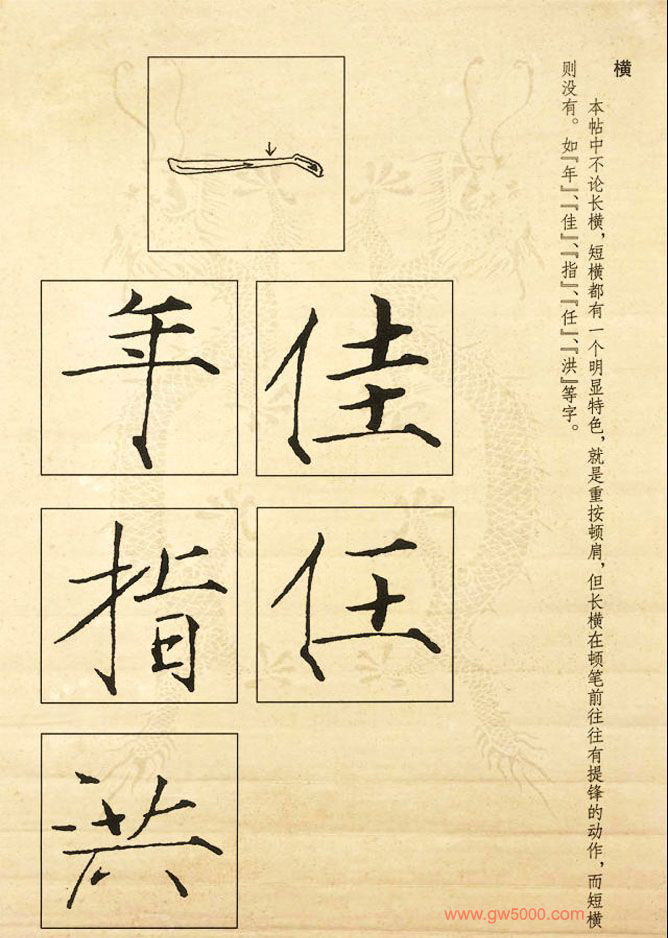 横
本帖中不论长横，短横都有一个明显特色，就是重按顿肩，但长横在顿笔前往往有提锋的动作，而短横
则没有。如『年』、『佳』、『指』、『任』、『洪』等字。
一
佳
年
任
指
洪
www.gw5000.com